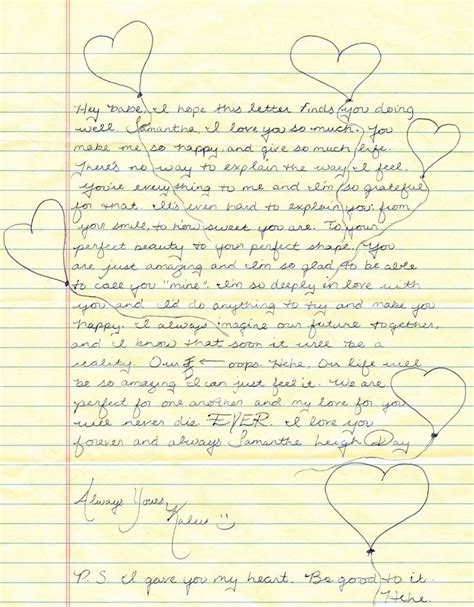 Hey babe, I hope this letter finds you doing
well. Samantha, I love you so much. You
make me so happy and give so much life.
There's no way to explain the way I feel.
You're everything to me and I'm so grateful
for that. It's even hard to explain you: from
your smile, to how sweet you are. To your
perfect beauty to your perfect shape. You
are just amazing and I'm so glad to be able
to call you "mine". I'm so deeply in love with
you and I'd do anything to try and make you
happy. I always imagine our future together,
and I know that soon it will be a
reality. Our ← oops. Hehe, Our life will
be so amazing I can just feel it. We are
perfect for one another and my love for you
will never die EVER. I love you
forever and always Samantha Leigh Day
Always Yours,
P.S. I gave you my heart. Be good to it.
Hehe.